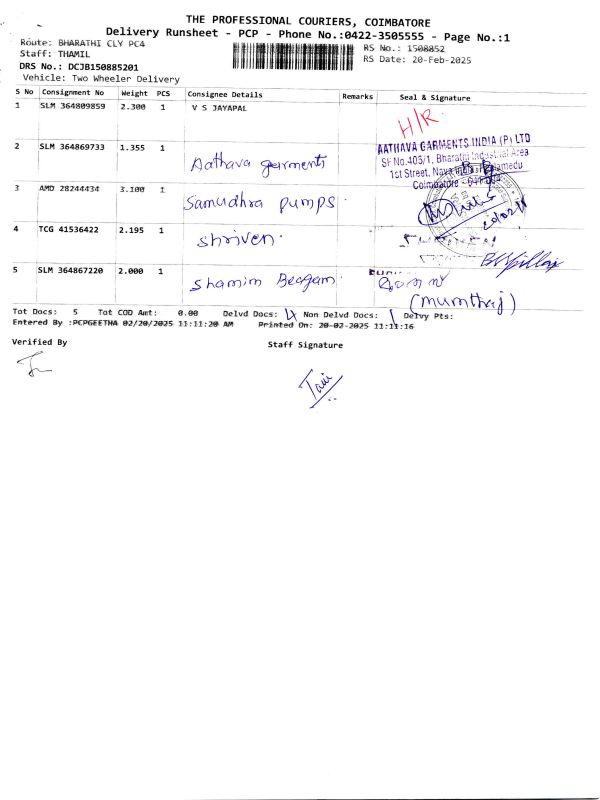 THE PROFESSIONAL COURIERS, COIMBATORE
Delivery Runsheet - PCP - Phone No.:0422-3505555 - Page No.:1
Route: BHARATHI CLY PC4
RS No.: 1508852
Staff: THAMIL
RS Date: 20-Feb-2025
DRS No.: DCJB150885201
Vehicle: Two Wheeler Delivery
S No Consignment No Weight PCS Consignee Details Remarks Seal & Signature
1 SLM 364809859 2.300 1 V S JAYAPAL
H/R
2 SLM 364869733 1.355 1 Aathava garments
AATHAVA GARMENTS INDIA (P) LTD
SF No.405/1, Bharathi Industrial Area
1st Street,
Coimbatore -
3 AMD 28244434 3.100 1 Samudhra pumps
20/02/25
4 TCG 41536422 2.195 1 shriven.
5 SLM 364867220 2.000 1 Shamim Beagam
(mumthaj)
Tot Docs: 5 Tot COD Amt: 0.00 Delvd Docs: 4 Non Delvd Docs: 1 Delvy Pts:
Entered By :PCPGEETHA 02/20/2025 11:11:20 AM Printed On: 20-02-2025 11:11:16
Verified By
Staff Signature